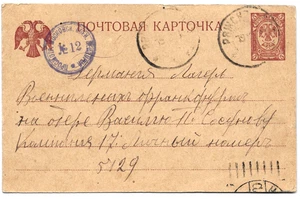 ПОЧТОВАЯ КАРТОЧКА
№ 12
Германия Лагерь
Военнопленных Франкфурт
на озере Василию П.
Компания 17. Личный номер
5129